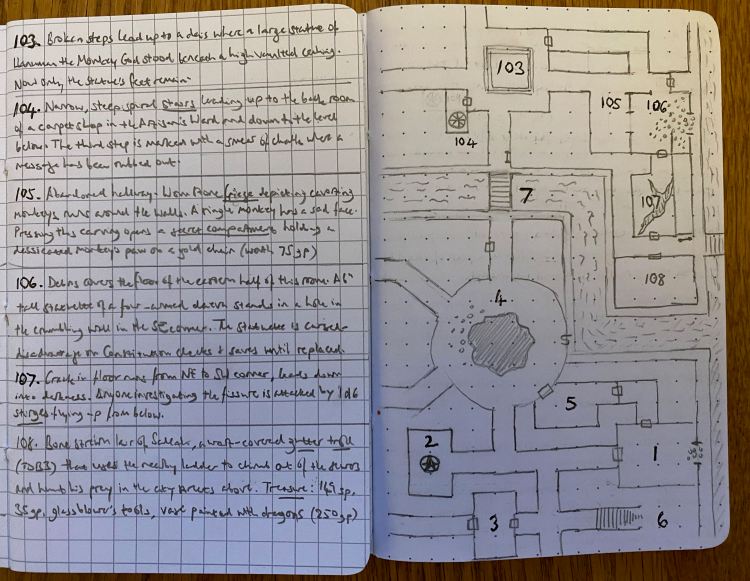 103. Broken steps lead up to a dais where a large statue of
Hanuman the Monkey God stood beneath a high vaulted ceiling.
Now only the statue's feet remain.
104. Narrow, steep spiral stairs leading up to the back room
of a carpet shop in the Artisan's Ward and down to the level
below. The third step is marked with a smear of chalk where a
message has been rubbed out.
105. Abandoned hallway. Worn stone frieze depicting cavorting
monkeys runs around the walls. A single monkey has a sad face.
Pressing this carving opens a secret compartment holding a
dessicated monkey's paw on a gold chain (worth 75gp)
106. Debris covers the floor of the eastern half of this room. A 6"
tall statuette of a four-armed demon stands in a hole in
the crumbling wall in the SE corner. The statuette is cursed
disadvantage on Constitution checks & saves until replaced.
107. Crack in floor runs from NE to SW corner, leads down
into darkness. Anyone investigating the fissure is attacked by 1d6
stirges flying up from below.
108. Bone strewn lair of a wart-covered gutter troll
(TOB3) that uses the nearby ladder to climb out of the sewers
and hunt his prey in the city streets above. Treasure: sp,
35gp, glassblower's tools, vase painted with dragons (250gp)
103
105
106
104
7
107
108
4
S
5
2
1
3
6